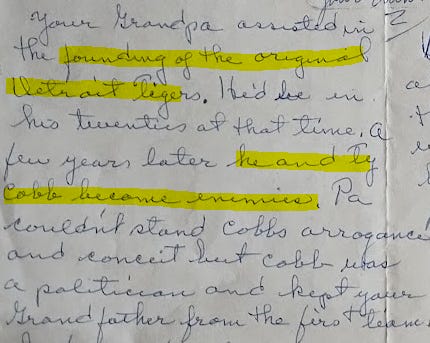 Your Grandpa assisted in
the founding of the original
Detroit Tigers. He'd be in
his twenties at that time. A
few years later he and Ty
Cobb became enemies. Pa
couldn't stand Cobbs arrogance
and conceit but Cobb was
a politician and kept your
Grandfather from the first team